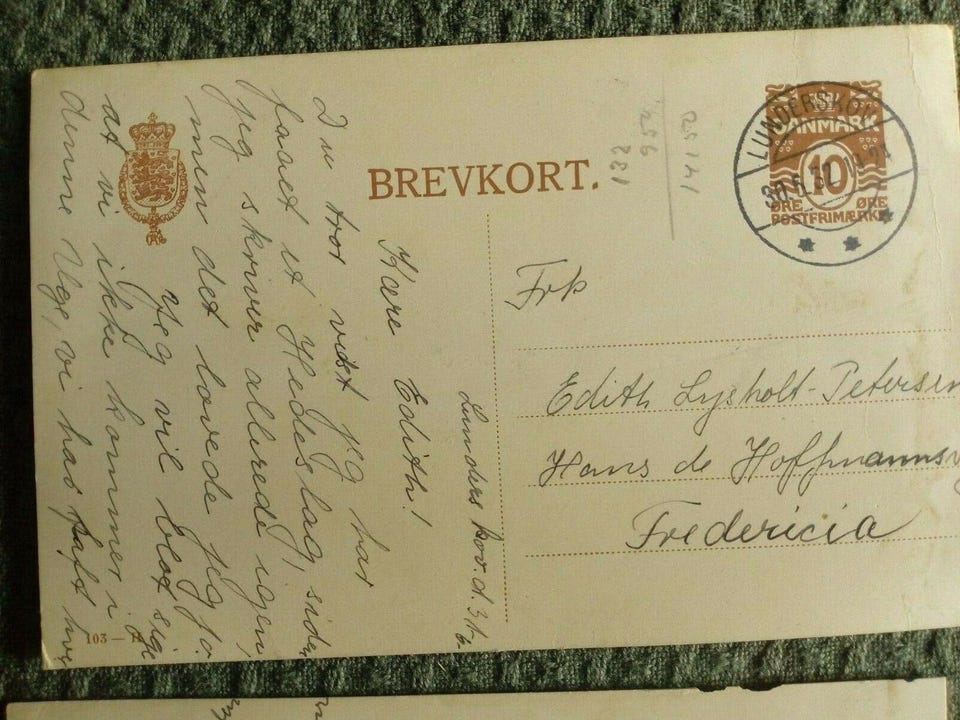 BREVKORT.
LUNDERSKOV
DANMARK
10
ØRE ØRE
POSTFRIMÆRKE
25141
256
Frk
Edith Lysholt-Petersen
Hans de Hoffmannsv
Fredericia
Lunderskov. d.
Kære Edith!
Du tror vist jeg har
faaet et Hedeslag, siden
jeg skriver allerede igen,
men det lovede jeg jo.
Jeg vil blot sige
at vi ikke kommer i
denne Uge, vi har haft
103 —